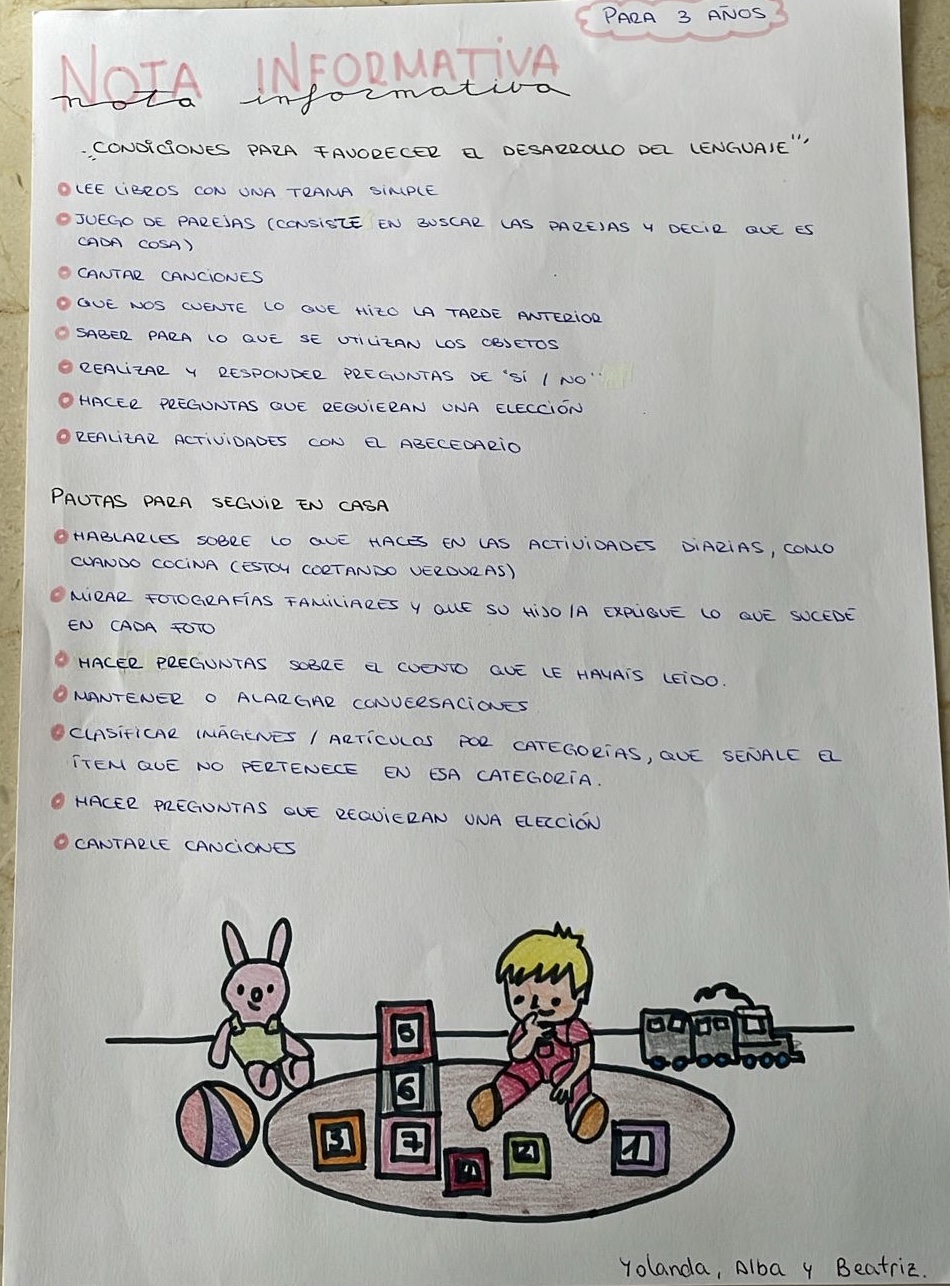 PARA 3 AÑOS
NOTA INFORMATIVA
nota informativa
"CONDICIONES PARA FAVORECER EL DESARROLLO DEL LENGUAJE"
LEE LIBROS CON UNA TRAMA SIMPLE
JUEGO DE PAREJAS (CONSISTE EN BUSCAR LAS PAREJAS Y DECIR QUE ES
CADA COSA)
CANTAR CANCIONES
QUE NOS CUENTE LO QUE HIZO LA TARDE ANTERIOR
SABER PARA LO QUE SE UTILIZAN LOS OBJETOS
REALIZAR Y RESPONDER PREGUNTAS DE "SÍ / NO"
HACER PREGUNTAS QUE REQUIERAN UNA ELECCIÓN
REALIZAR ACTIVIDADES CON EL ABECEDARIO
PAUTAS PARA SEGUIR EN CASA
HABLARLES SOBRE LO QUE HACES EN LAS ACTIVIDADES DIARIAS, COMO
CUANDO COCINA (ESTOY CORTANDO VERDURAS)
MIRAR FOTOGRAFÍAS FAMILIARES Y QUE SU HIJO/A EXPLIQUE LO QUE SUCEDE
EN CADA FOTO
HACER PREGUNTAS SOBRE EL CUENTO QUE LE HAYAIS LEÍDO.
MANTENER O ALARGAR CONVERSACIONES
CLASIFICAR IMÁGENES / ARTÍCULOS POR CATEGORÍAS, QUE SEÑALE EL
ÍTEM QUE NO PERTENECE EN ESA CATEGORÍA.
HACER PREGUNTAS QUE REQUIERAN UNA ELECCIÓN
CANTARLE CANCIONES
5
6
3
7
4
2
1
Yolanda, Alba y Beatriz.